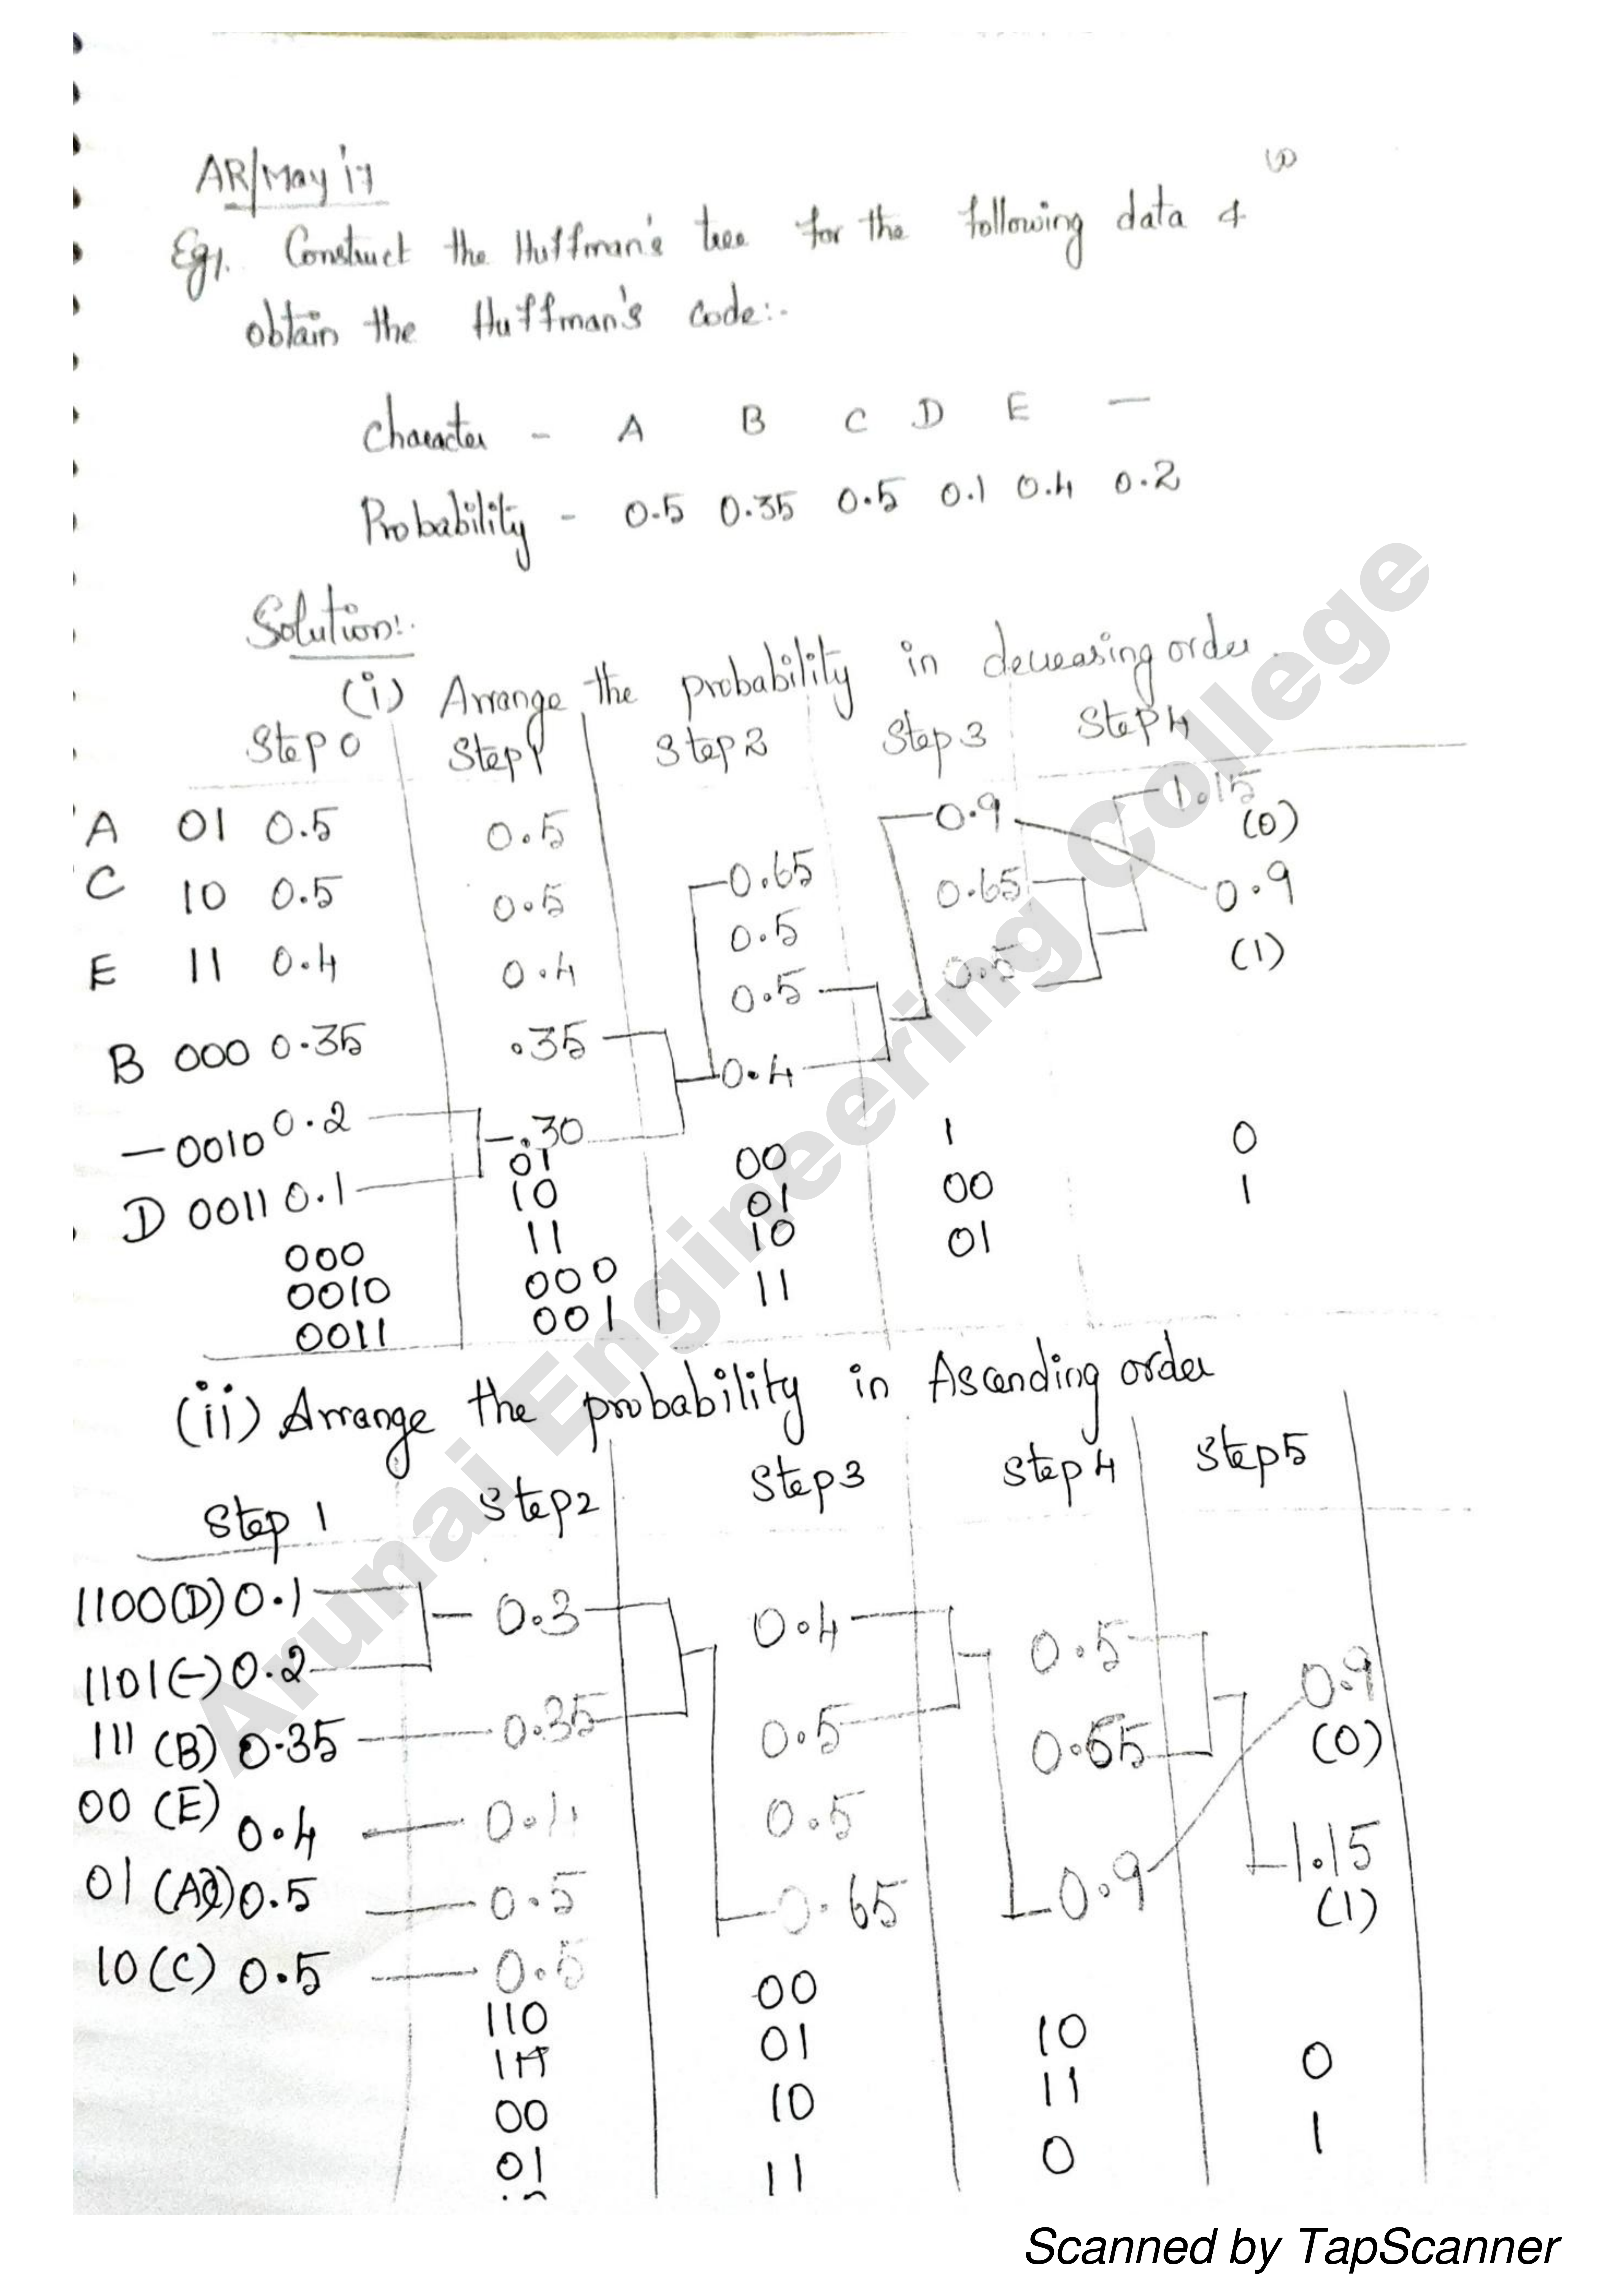 AR/May'17
Eg1. Construct the Huffman's tree for the following data &
obtain the Huffman's code:-
Character - A B C D E —
Probability - 0.5 0.35 0.5 0.1 0.4 0.2
Solution:-
(i) Arrange the probability in decreasing order.
Step 0 Step 1 Step 2 Step 3 Step 4
A 01 0.5 0.5 0.65 0.9 1.15 (0)
C 10 0.5 0.5 0.5 0.65 0.9 (1)
E 11 0.4 0.4 0.5 0.5
B 000 0.35 .35 0.4
— 0010 0.2 .30
D 0011 0.1
01 00 1 0
10 01 00 1
000 11 10 01
0010 000 11
0011 001
(ii) Arrange the probability in Ascending order
Step 1 Step 2 Step 3 Step 4 Step 5
1100 (D) 0.1 0.3 0.4 0.5 0.9 (0)
1101 (-) 0.2
111 (B) 0.35 0.35 0.5 0.65
00 (E) 0.4 0.4 0.5 0.9 1.15 (1)
01 (A) 0.5 0.5 0.65
10 (C) 0.5 0.5
110 00 10 0
111 01 11 1
00 10 0
01 11
Arunai Engineering College
Scanned by TapScanner